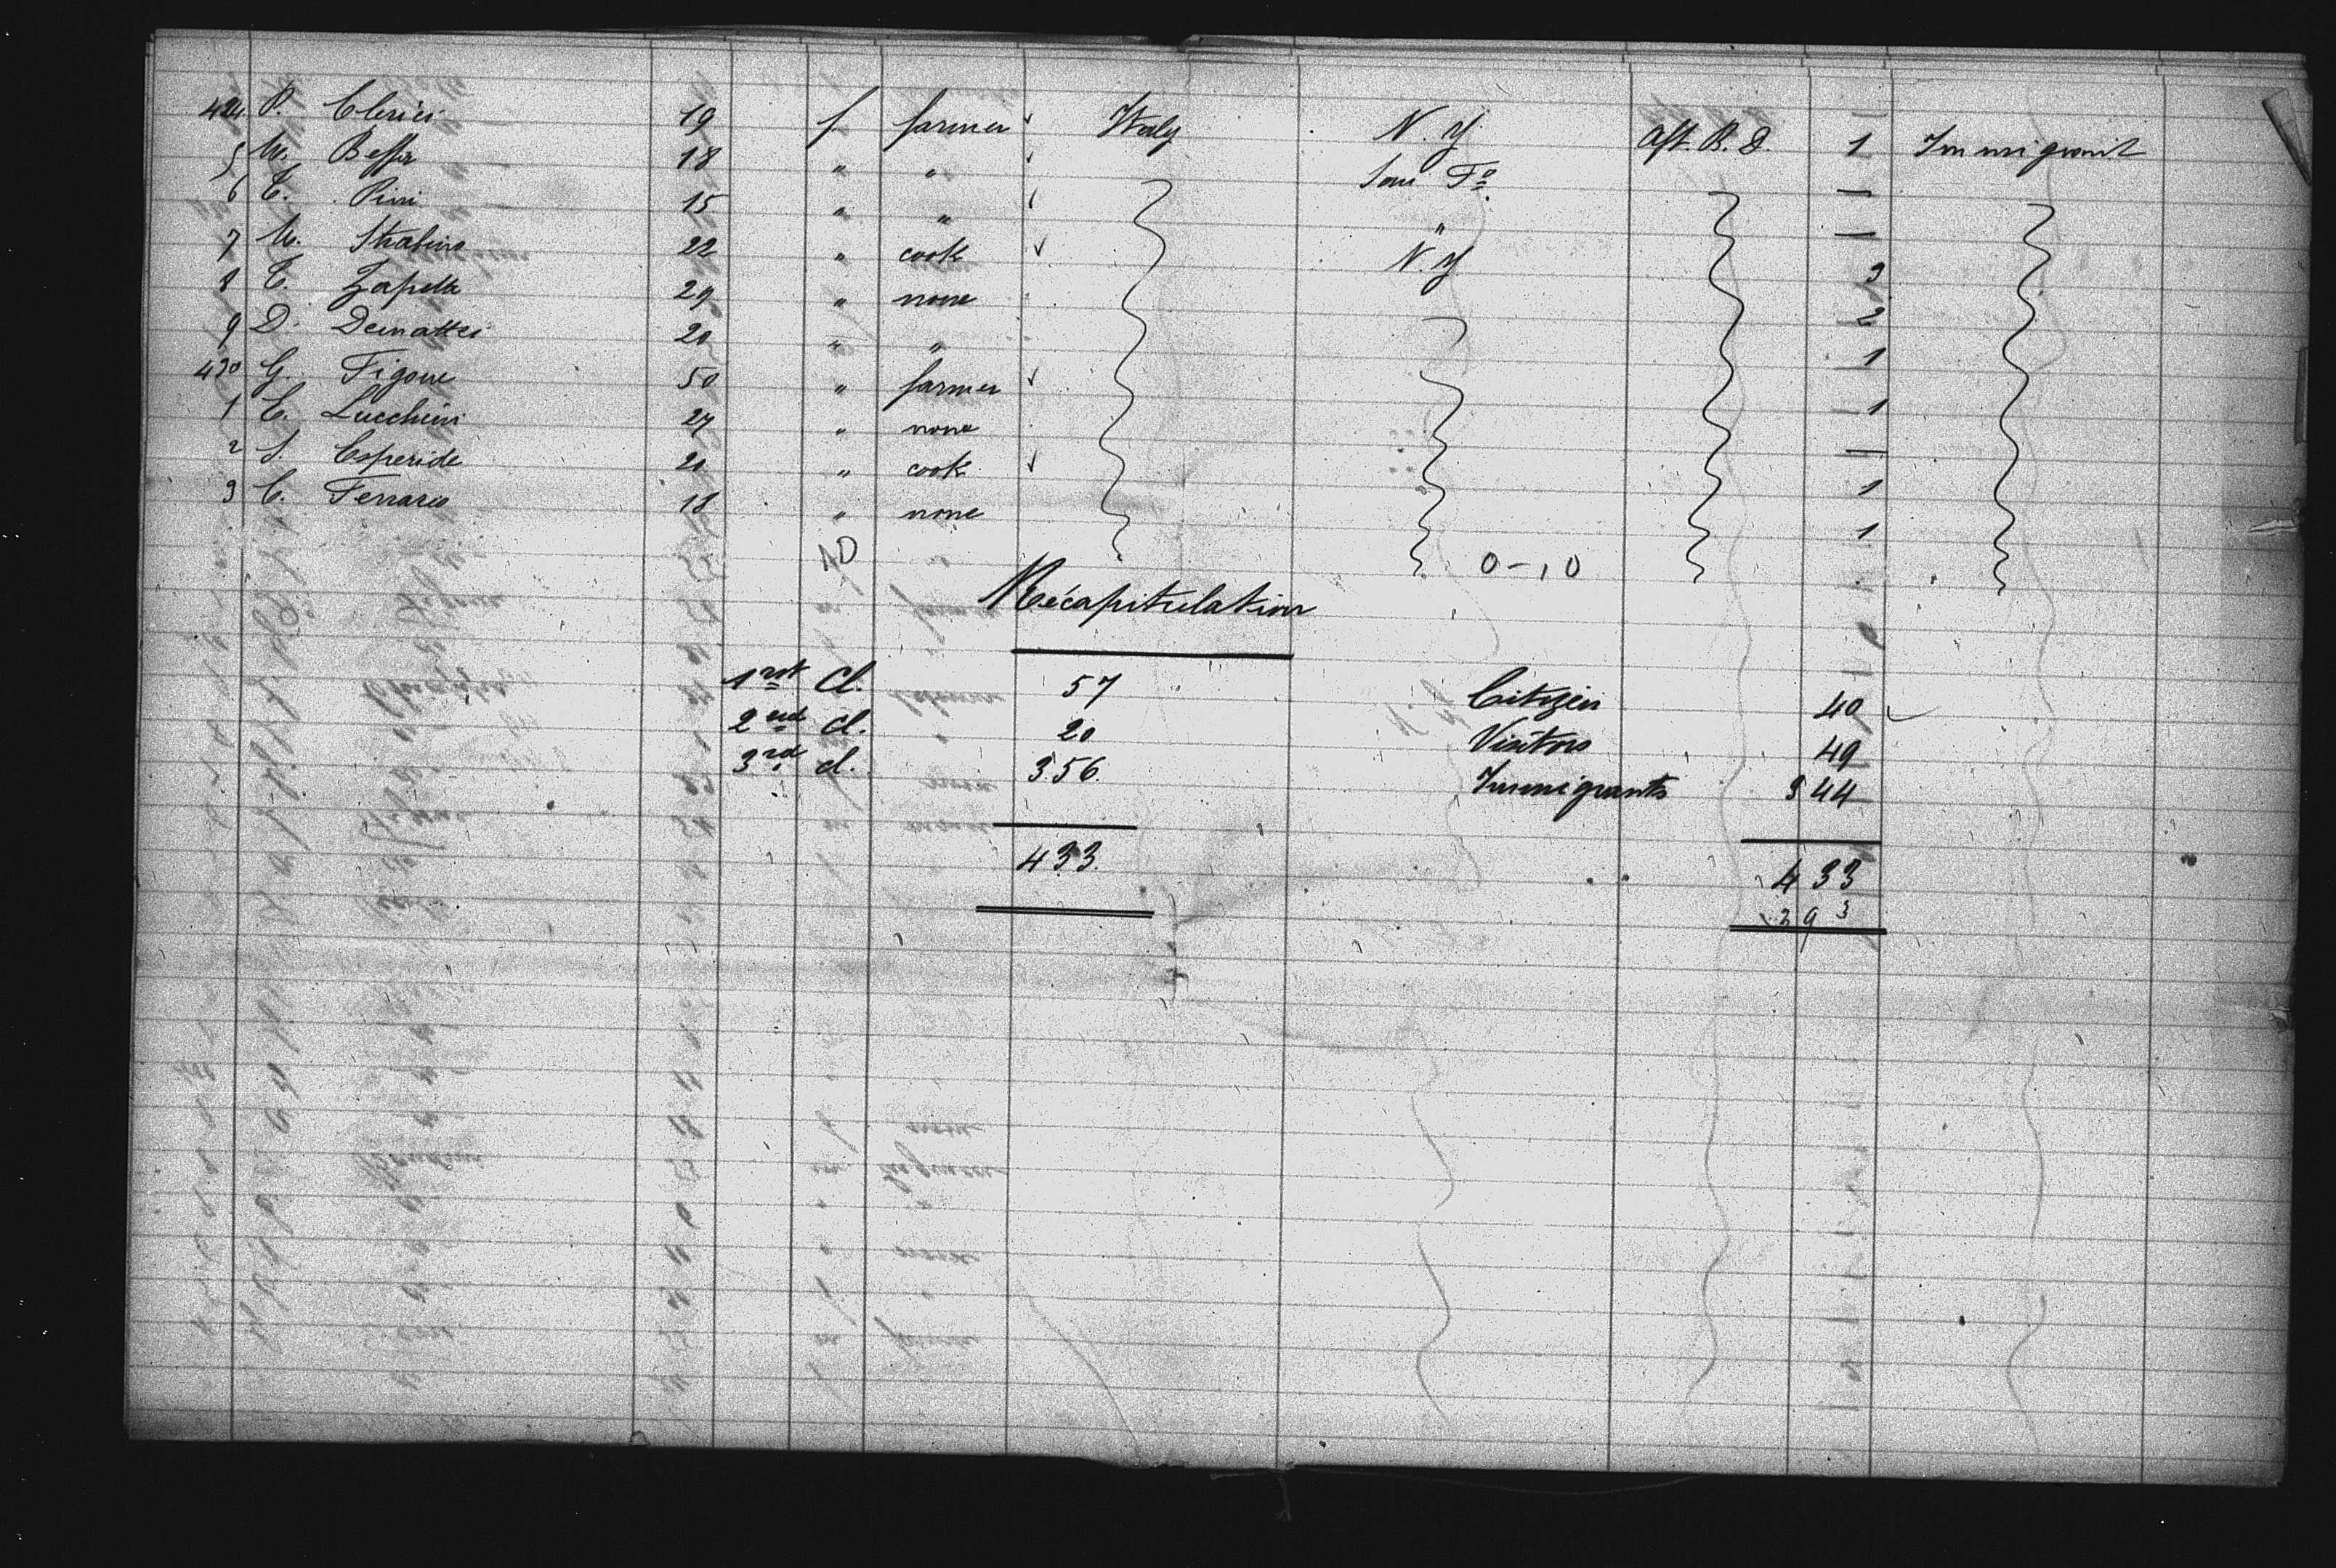 424 P. Clerici 19 f farmer Italy N. Y. Aft. B. D. 1 Immigrant
5 M. Beffa 18 " " San Fº —
6 C. Pini 15 " " " —
7 M. Strabino 22 " cook N. Y 3
8 C. Zapella 29 " none 2
9 D. Demattei 20 " " 1
430 G. Figone 50 " farmer 1
1 C. Lucchini 24 " none —
2 S. Esperide 20 " cook 1
3 C. Ferrario 18 " none 1
10 0-10
Récapitulation
1rst Cl. 57 Citizen 40
2nd Cl. 20 Visitors 49
3rd cl. 356 Immigrants 344
433 433
293